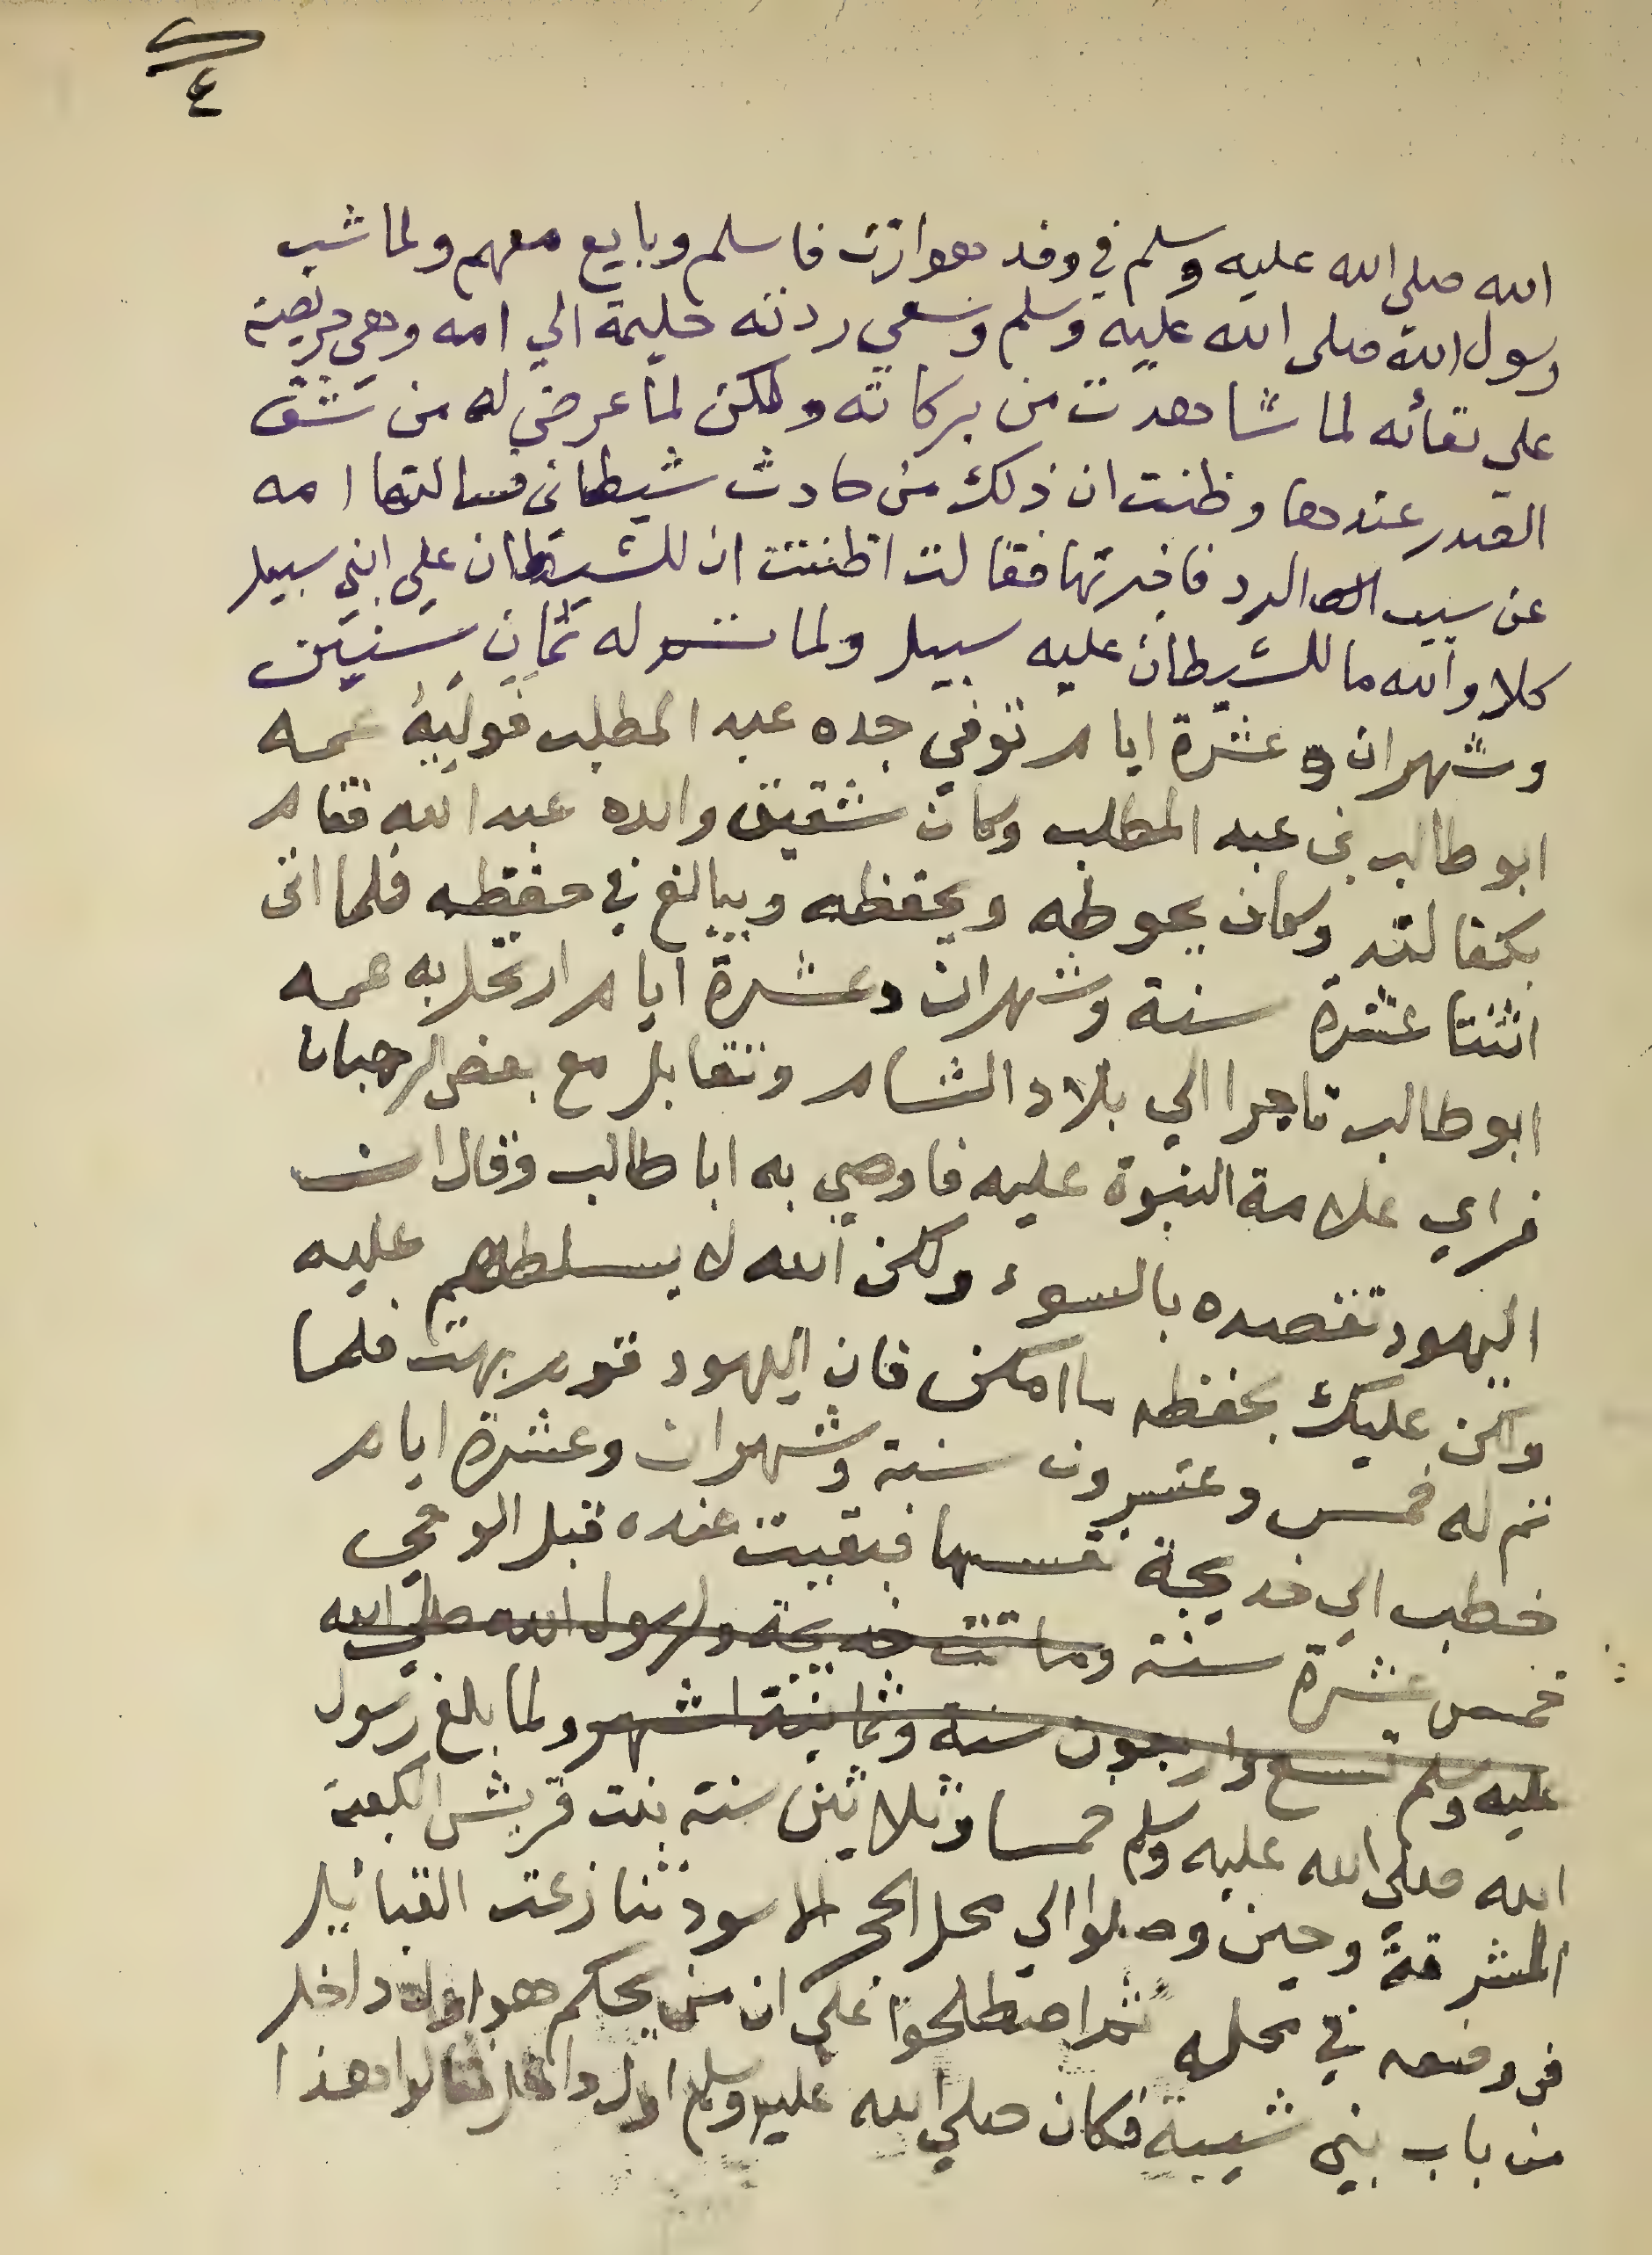 ٤
الله صلى الله عليه وسلم في وفد هوازن فاسلم وبايع معهم ولما شب
رسول الله صلى الله عليه وسلم وسعي ردته حليمة الي امه وهي حريصة
علي بقائه لما شاهدت من بركاته ولكن لما عرض له من شق
الصدر عندها وظنت ان ذلك من حادث شيطاني فسالتها امه
عن سبب الرد فاخبرتها فقالت اظننت ان للشيطان علي ابني سبيل
كلا والله ما للشيطان عليه سبيل ولما تم له ثمان سنين
وشهران وعشرة ايام توفي جده عبد المطلب فوليه عمه
ابو طالب بن عبد المطلب وكان شقيق والده عبد الله فقام
بكفالته وكان يحوطه ويحفظه ويبالغ في حفظه فلما اتى
اثنتا عشرة سنة وشهران وعشرة ايام ارتحل به عمه
ابو طالب تاجرا الي بلاد الشام وتقابل مع بعض الرهبان
فراي علامة النبوة عليه فاوصي به ابا طالب وقال ان
اليهود تقصده بالسوء ولكن الله لا يسلطهم عليه
ولكن عليك بحفظه ما امكن فان اليهود قوم بهت فلما
تم له خمس وعشرون سنة وشهران وعشرة ايام
خطب الي خديجة نفسها فبقيت عنده قبل الوحي
خمس عشرة سنة وماتت خديجة ولرسول الله صلي الله
عليه وسلم تسع واربعون سنة وثمانية اشهر ولما بلغ رسول
الله صلى الله عليه وسلم خمسا وثلاثين سنة بنت قريش الكعبة
المشرفة وحين وصلوا الي محل الحجر الاسود تنازعت القبائل
في وضعه في محله ثم اصطلحوا علي ان من يحكم هو اول داخل
من باب بني شيبة فكان صلي الله عليه وسلم اول داخل فقالوا هذا